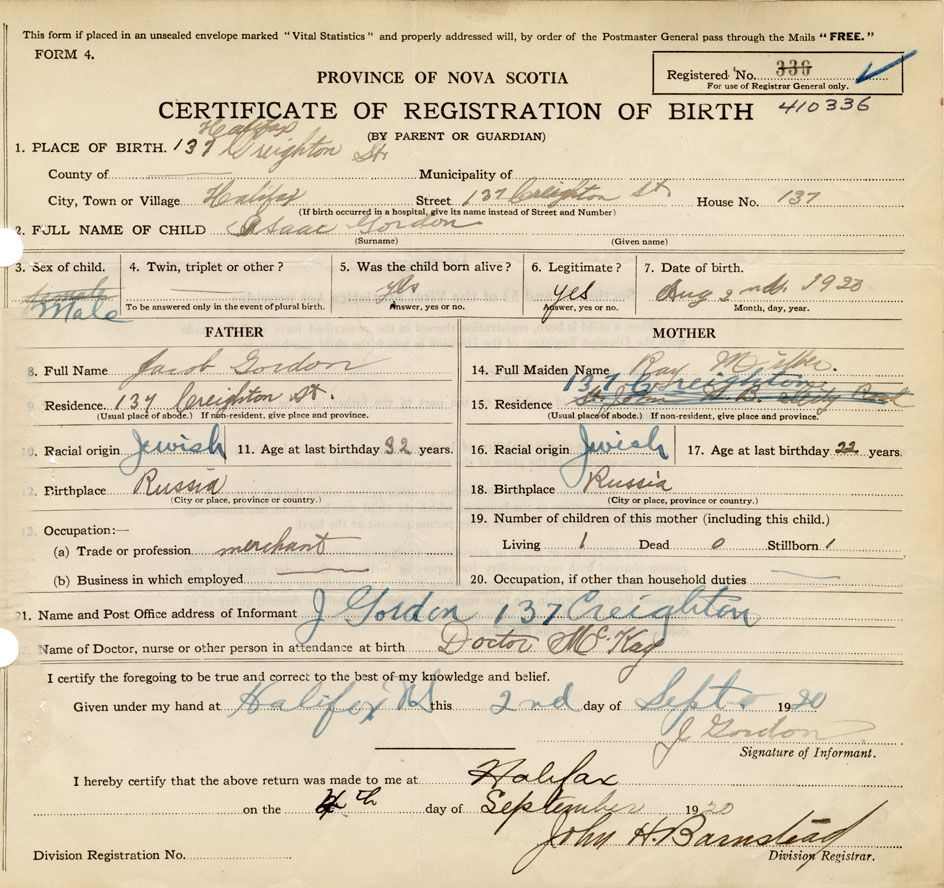 This form if placed in an unsealed envelope marked "Vital Statistics" and properly addressed will, by order of the Postmaster General pass through the Mails "FREE."
FORM 4.
Registered No. 336
For use of Registrar General only.
410336
PROVINCE OF NOVA SCOTIA
CERTIFICATE OF REGISTRATION OF BIRTH
(BY PARENT OR GUARDIAN)
Halifax
1. PLACE OF BIRTH. 137 Creighton St.
County of Municipality of
City, Town or Village Halifax Street 137 Creighton St House No. 137
(If birth occurred in a hospital, give its name instead of Street and Number)
2. FULL NAME OF CHILD Isaac Gordon
(Surname) (Given name)
3. Sex of child. 4. Twin, triplet or other? 5. Was the child born alive? 6. Legitimate? 7. Date of birth.
female yes yes Aug 2nd. 1920
Male To be answered only in the event of plural birth. Answer, yes or no. Answer, yes or no. Month, day, year.
FATHER MOTHER
8. Full Name Jacob Gordon 14. Full Maiden Name Ray
137 Creighton
9. Residence 137 Creighton St. 15. Residence St. John N.B.
(Usual place of abode.) If non-resident, give place and province. (Usual place of abode.) If non-resident, give place and province.
10. Racial origin Jewish 11. Age at last birthday 32 years. 16. Racial origin Jewish 17. Age at last birthday 22 years.
12. Birthplace Russia 18. Birthplace Russia
(City or place, province or country.) (City or place, province or country.)
13. Occupation:— 19. Number of children of this mother (including this child.)
(a) Trade or profession merchant Living 1 Dead 0 Stillborn 1
(b) Business in which employed 20. Occupation, if other than household duties
21. Name and Post Office address of Informant J Gordon 137 Creighton
Name of Doctor, nurse or other person in attendance at birth Doctor McKay
I certify the foregoing to be true and correct to the best of my knowledge and belief.
Given under my hand at Halifax NS this 2nd day of Sept 1920
J. Gordon
Signature of Informant.
I hereby certify that the above return was made to me at Halifax
on the 4th day of September 1920
John H. Barnstead
Division Registration No. Division Registrar.